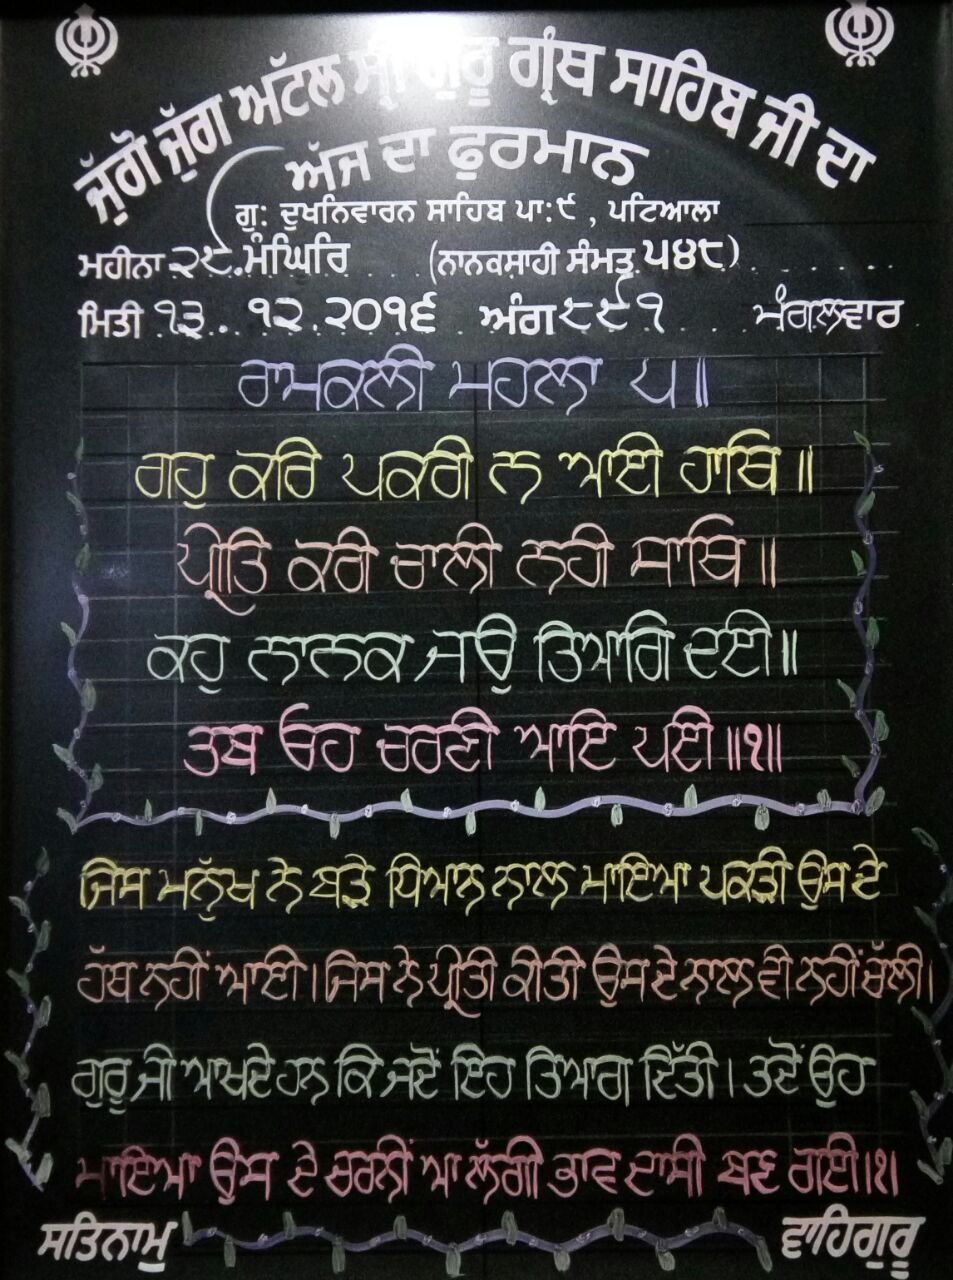 ਜੁੱਗੋ ਜੁੱਗ ਅੱਟਲ ਸ੍ਰੀ ਗੁਰੂ ਗ੍ਰੰਥ ਸਾਹਿਬ ਜੀ ਦਾ
ਅੱਜ ਦਾ ਫੁਰਮਾਨ
ਗੁ: ਦੁਖਨਿਵਾਰਨ ਸਾਹਿਬ ਪਾ:੯ , ਪਟਿਆਲਾ
ਮਹੀਨਾ ੨੯ ਮੰਘਿਰਿ (ਨਾਨਕਸ਼ਾਹੀ ਸੰਮਤ ੫੪੮)
ਮਿਤੀ ੧੩ ੧੨ ੨੦੧੬ ਅੰਗ ੮੯੧ ਮੰਗਲਵਾਰ
ਰਾਮਕਲੀ ਮਹਲਾ ੫॥
ਗਹੁ ਕਰਿ ਪਕਰੀ ਨ ਆਈ ਹਾਥਿ॥
ਪ੍ਰੀਤਿ ਕਰੀ ਚਾਲੀ ਨਹੀ ਸਾਥਿ॥
ਕਹੁ ਨਾਨਕ ਜਉ ਤਿਆਗਿ ਦਈ॥
ਤਬ ਓਹ ਚਰਣੀ ਆਇ ਪਈ॥੧॥
ਜਿਸ ਮਨੁੱਖ ਨੇ ਬੜੇ ਧਿਆਨ ਨਾਲ ਮਾਇਆ ਪਕੜੀ ਉਸ ਦੇ
ਹੱਥ ਨਹੀਂ ਆਈ। ਜਿਸ ਨੇ ਪ੍ਰੀਤੀ ਕੀਤੀ ਉਸ ਦੇ ਨਾਲ ਵੀ ਨਹੀਂ ਚੱਲੀ।
ਗੁਰੂ ਜੀ ਆਖਦੇ ਹਨ ਕਿ ਜਦੋਂ ਇਹ ਤਿਆਗ ਦਿੱਤੀ। ਤਦੋਂ ਉਹ
ਮਾਇਆ ਉਸ ਦੇ ਚਰਨੀਂ ਆ ਲੱਗੀ ਭਾਵ ਦਾਸੀ ਬਣ ਗਈ।੧।
ਸਤਿਨਾਮੁ ਵਾਹਿਗੁਰੂ